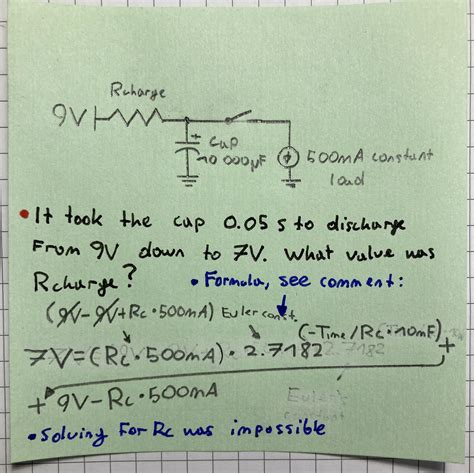 Rcharge
9V
+
Cap
10 000µF
500mA constant
load
• It took the cap 0.05 s to discharge
From 9V down to 7V. What value was
Rcharge?
• Formula, see comment:
(9V-9V+Rc•500mA) Euler const.
7V=(Rc•500mA)•2.7182(-Time/Rc•10mF)+
+ 9V-Rc•500mA
• Solving For Rc was impossible